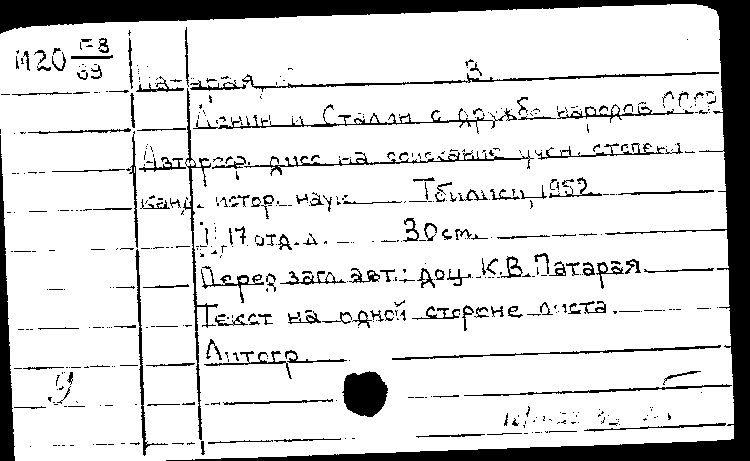 М20 Г-8
69
Патарая, В.
Ленин и Сталин о дружбе народов СССР
Автореф. дисс на соискание учен. степени
канд. истор. наук. Тбилиси, 1952
17 отд. л. 30 см.
Перед загл. авт.: доц. К.В. Патарая.
Текст на одной стороне листа.
Литогр.